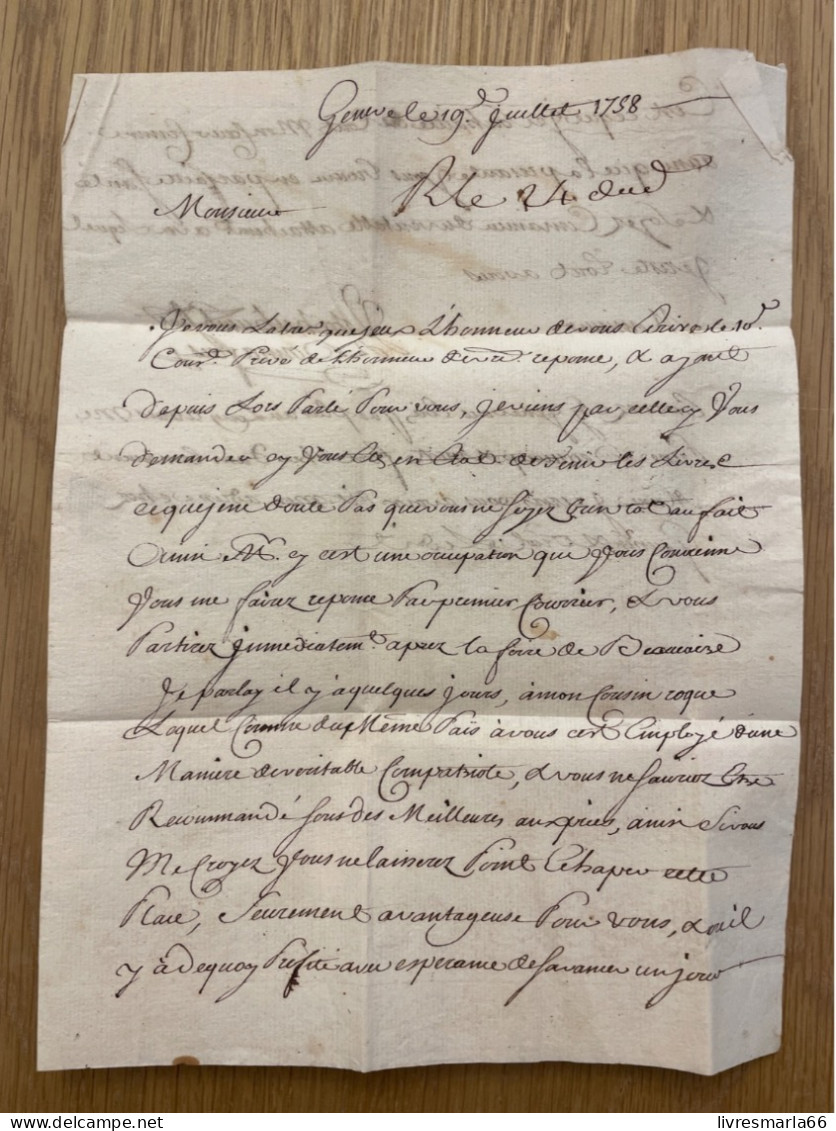 Geneve le 19.e Juillet 1758
R le 24 dud
Monsieur
Je vous la lettre que j'eux L'honneur de vous Ecrire le 10.e
Cour.t Privé de L'honneur de vre. reponse, & ayant
Depuis Lors Parlé Pour vous, je viens par celle cy Vous
demander sy Vous Etes en Etat de tenir les Livres
ce que je ne doute Pas que vous ne soyez bientot au fait
Ainsi M.r sy c'est une ocupation que Vous Convienne
Vous me fairez reponse Par premier Courrier, & vous
Partirez jmmediatem.t aprez la foire de Beaucaire
Je parlay il y a quelques jours, à mon Cousin roque
Loquel Comme du Même Païs à vous c'est Employé d'une
Maniere de veritable Compatriote, & vous ne sauriez Etre
Recommandé sous des Meilleures auspices, ainsi Si vous
Me Croyez Vous ne laisserez Point Echaper cette
Place, Seurement avantageuse Pour vous, & ou il
y à dequoy Profiter avec esperance de s'avancer un jour
livresmarla66